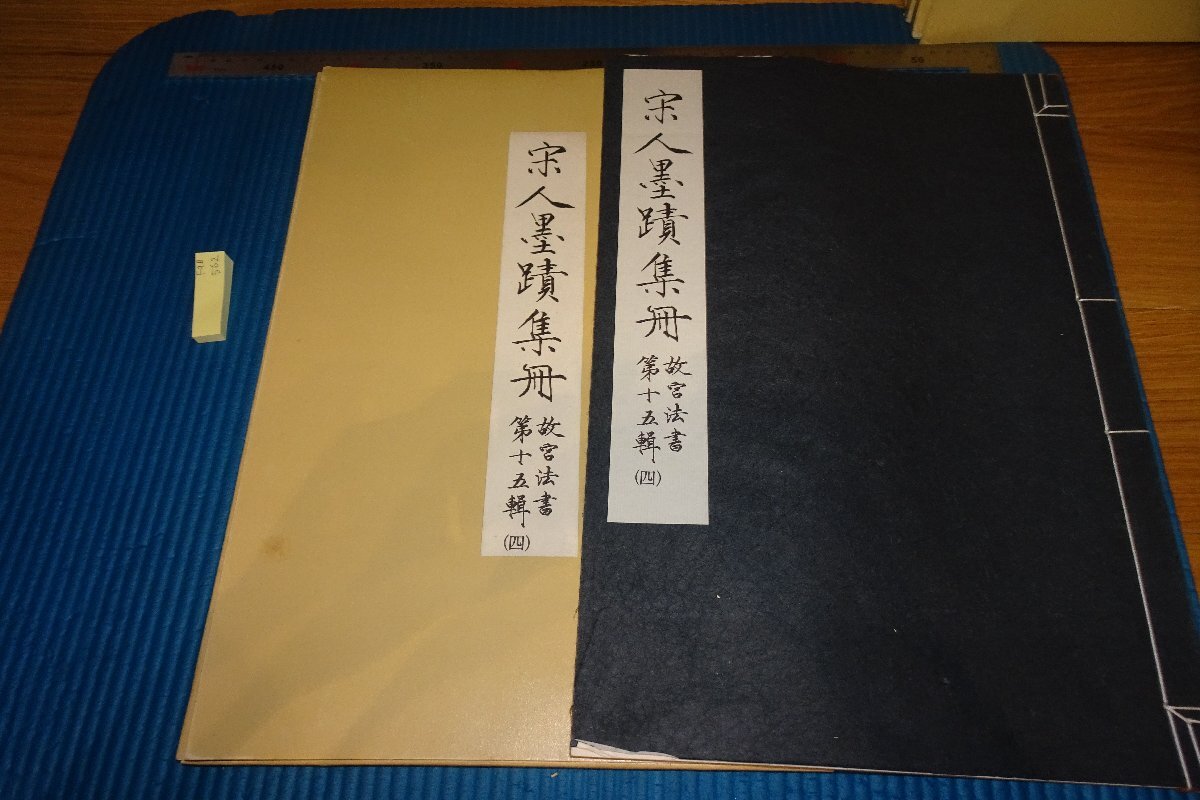 宋人墨蹟集冊
故宮法書
第十五輯
(四)
宋人墨蹟集冊
故宮法書
第十五輯
(四)
562